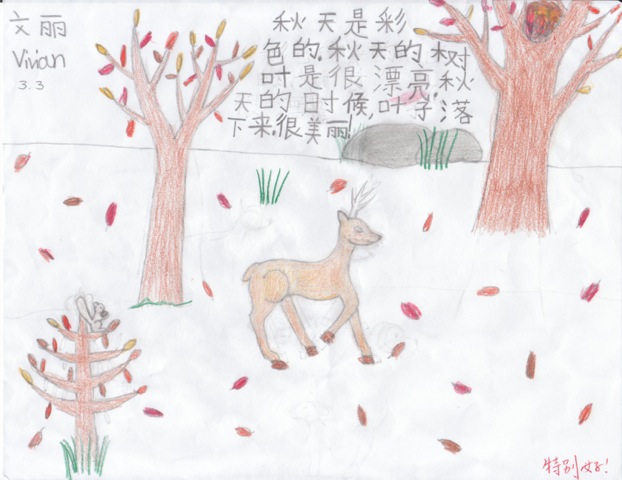 文丽
Vivian
3.3
秋天是彩
色的.秋天的树
叶是很漂亮.秋
天的时候,叶子落
下来.很美丽!
特别好!